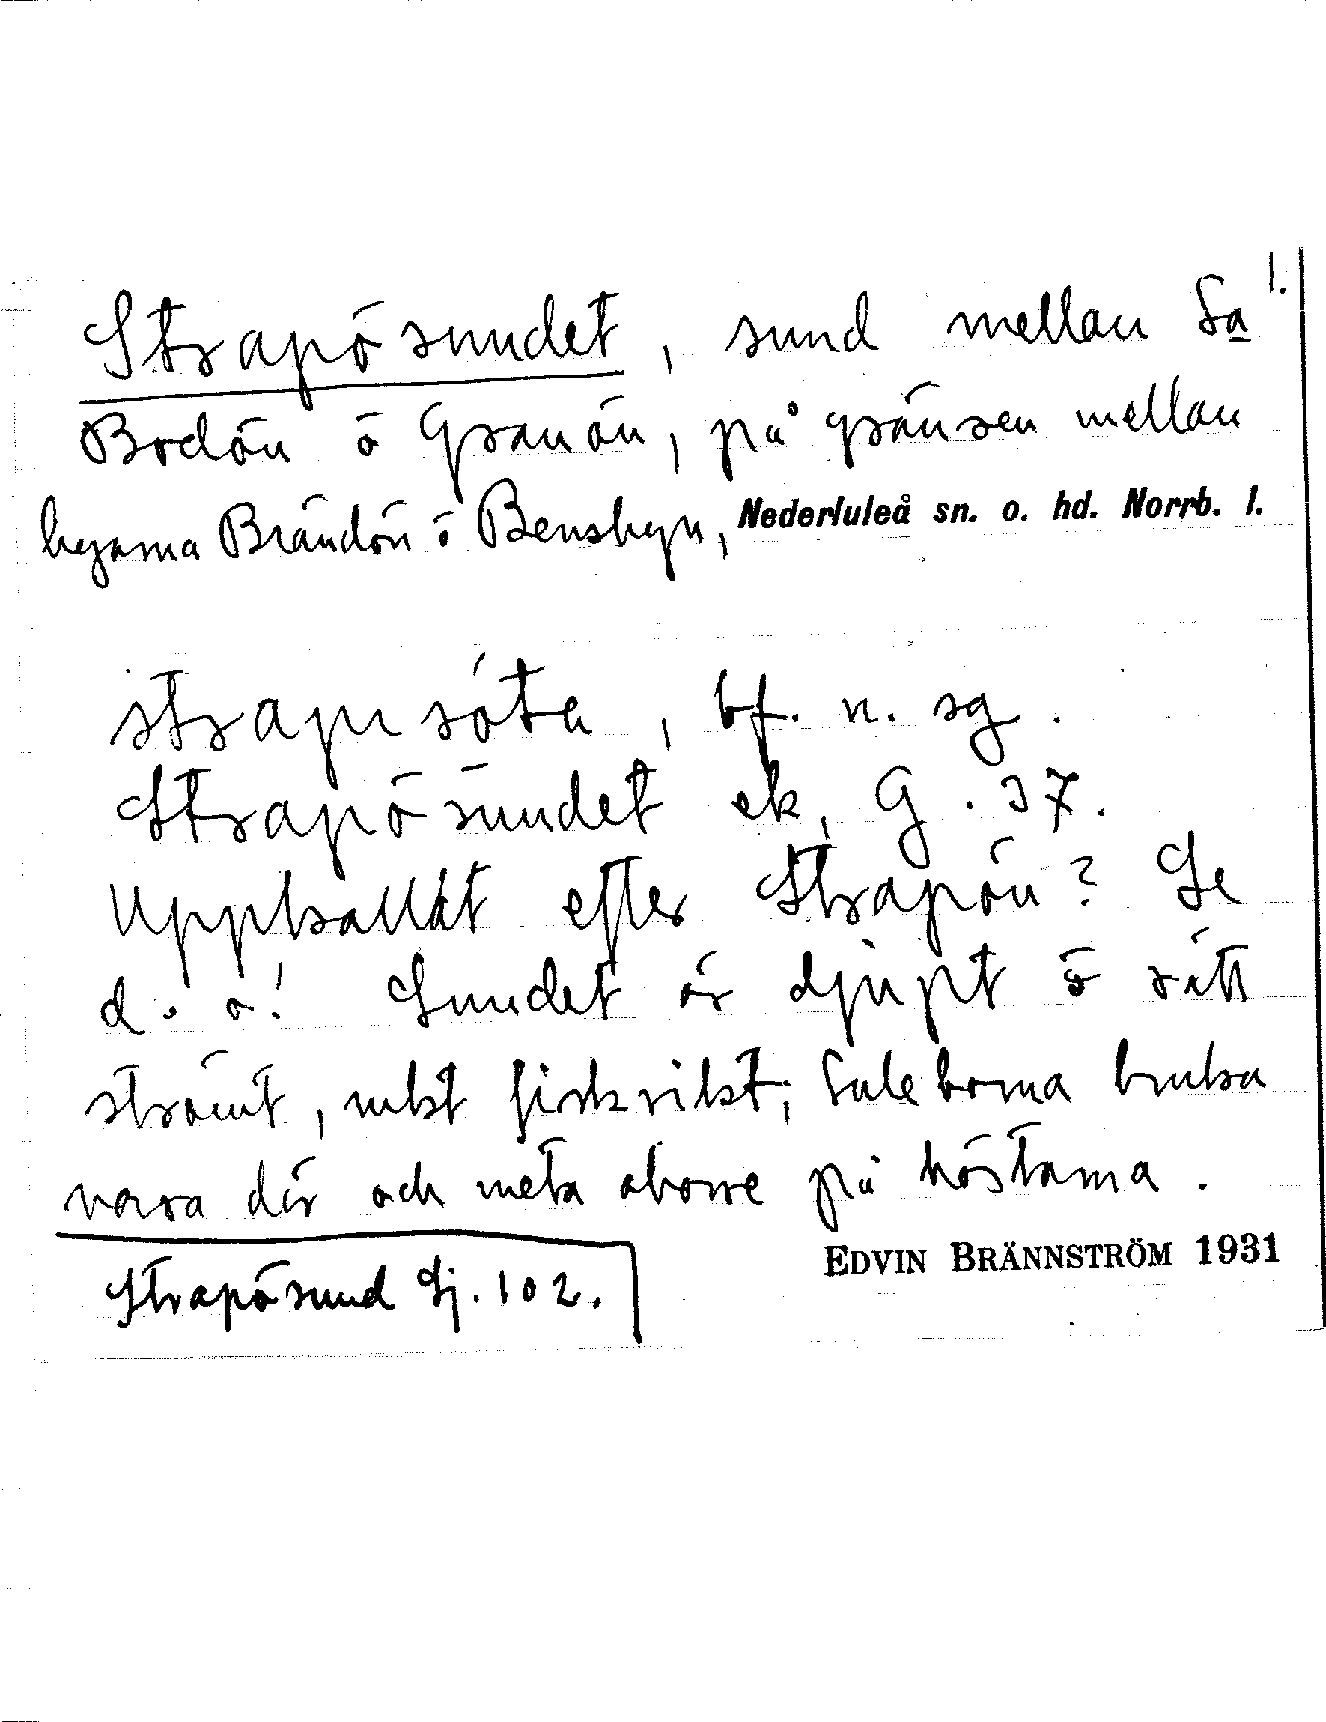 1.
Strapösundet, sund mellan Sa
Bodön ö Granön, på gränsen mellan
byarna Brändön ö Bensbyn, Nederluleå sn. o. hd. Norrb. l.
strapusöta, bf. n. sg.
Strapösundet ek. G. 37.
Uppkallat efter Strapön? Se
d. o! Sundet är djupt ö rätt
strömt, mkt fiskrikt; Luleborna bruka
vara där och meta aborre på höstarna.
Strapösund Sj. 102.
EDVIN BRÄNNSTRÖM 1931